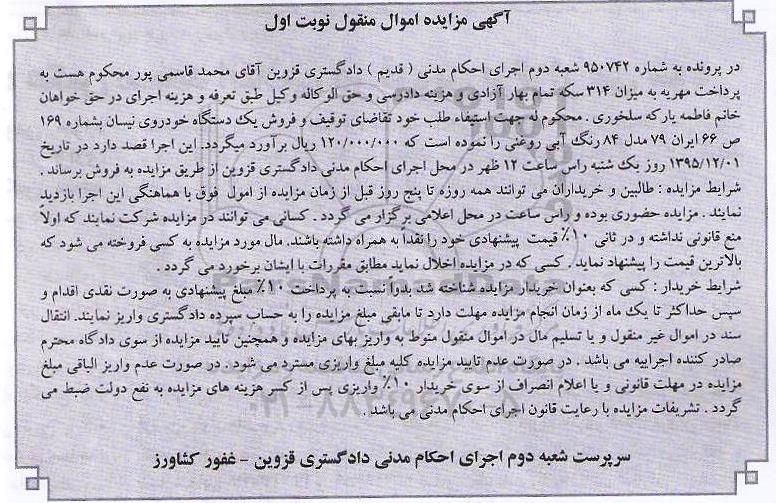 آگهی مزایده اموال منقول نوبت اول
در پرونده به شماره ۹۵۰۷۴۲ شعبه دوم اجرای احکام مدنی ( قدیم ) دادگستری قزوین آقای محمد قاسمی پور محکوم هست به
پرداخت مهریه به میزان ۳۱۴ سکه تمام بهار آزادی و هزینه دادرسی و حق الوکاله وکیل طبق تعرفه و هزینه اجرای در حق خواهان
خانم فاطمه یارکه سلخوری . محکوم له جهت استیفاء طلب خود تقاضای توقیف و فروش یک دستگاه خودروی نیسان بشماره ۱۶۹
ص ۶۶ ایران ۷۹ مدل ۸۴ رنگ آبی روغنی را نموده است که ۱۲۰/۰۰۰/۰۰۰ ریال برآورد میگردد. این اجرا قصد دارد در تاریخ
۱۳۹۵/۱۲/۰۱ روز یک شنبه راس ساعت ۱۲ ظهر در محل اجرای احکام مدنی دادگستری قزوین از طریق مزایده به فروش برساند .
شرایط مزایده : طالبین و خریداران می توانند همه روزه تا پنج روز قبل از زمان مزایده از امول فوق با هماهنگی این اجرا بازدید
نمایند . مزایده حضوری بوده و راس ساعت در محل اعلامی برگزار می گردد . کسانی می توانند در مزایده شرکت نمایند که اولاً
منع قانونی نداشته و در ثانی ۱۰٪ قیمت پیشنهادی خود را نقداً به همراه داشته باشند. مال مورد مزایده به کسی فروخته می شود که
بالاترین قیمت را پیشنهاد نماید . کسی که در مزایده اخلال نماید مطابق مقررات با ایشان برخورد می گردد .
شرایط خریدار : کسی که بعنوان خریدار مزایده شناخته شد بدواً نسبت به پرداخت ۱۰٪ مبلغ پیشنهادی به صورت نقدی اقدام و
سپس حداکثر تا یک ماه از زمان انجام مزایده مهلت دارد تا مابقی مبلغ مزایده را به حساب سپرده دادگستری واریز نمایند. انتقال
سند در اموال غیر منقول و یا تسلیم مال در اموال منقول منوط به واریز بهای مزایده و همچنین تایید مزایده از سوی دادگاه محترم
صادر کننده اجراییه می باشد . در صورت عدم تایید مزایده کلیه مبلغ واریزی مسترد می شود . در صورت عدم واریز الباقی مبلغ
مزایده در مهلت قانونی و یا اعلام انصراف از سوی خریدار ۱۰٪ واریزی پس از کسر هزینه های مزایده به نفع دولت ضبط می
گردد . تشریفات مزایده با رعایت قانون اجرای احکام مدنی می باشد .
سرپرست شعبه دوم اجرای احکام مدنی دادگستری قزوین - غفور کشاورز